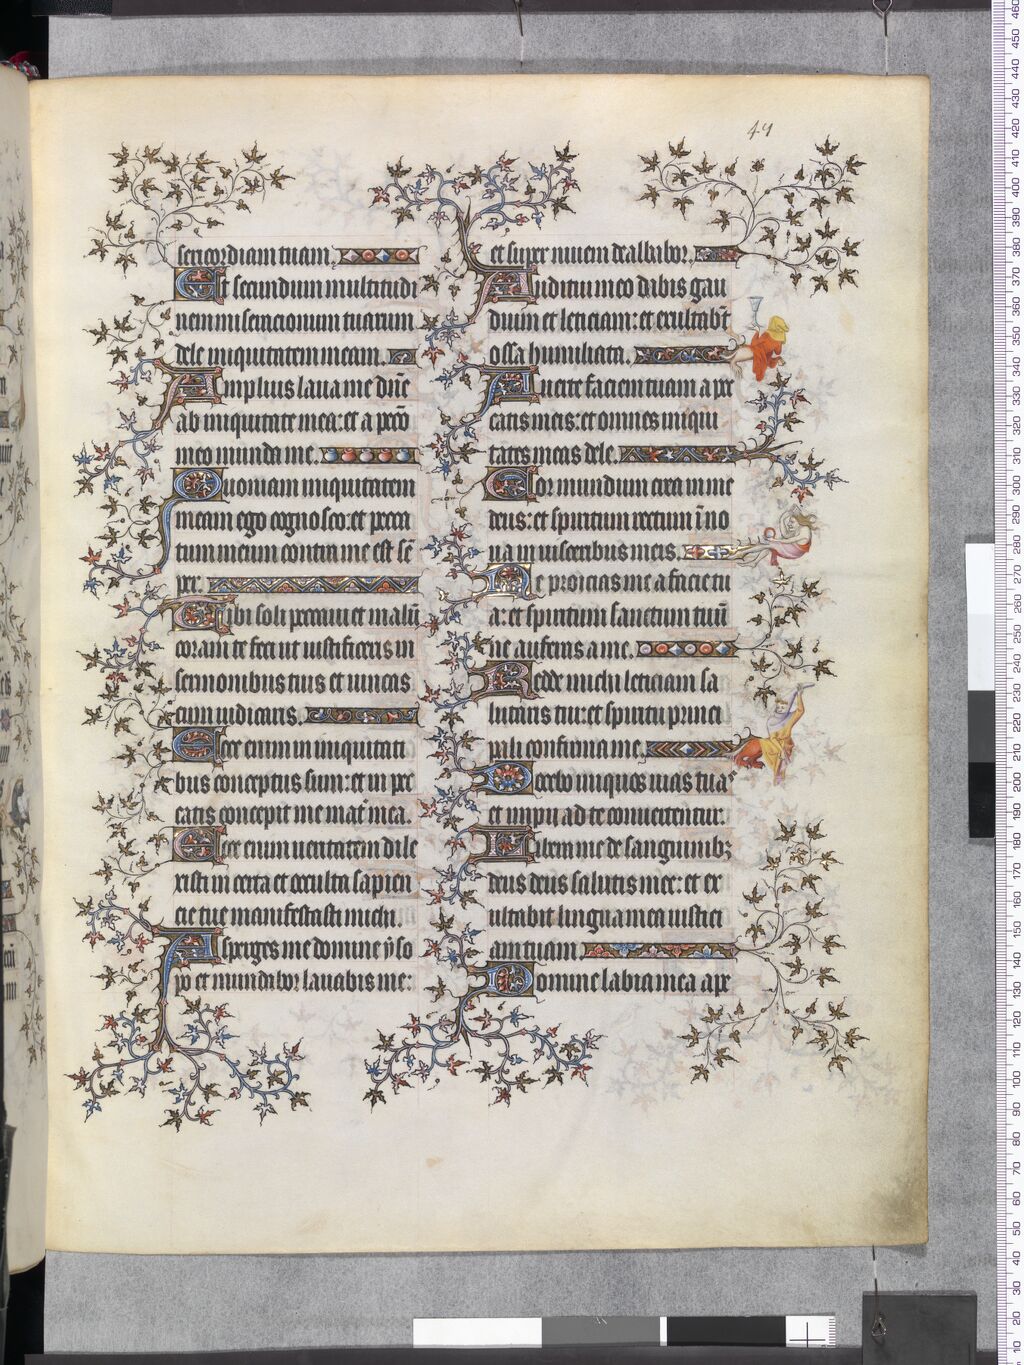 44
sericordiam tuam.
Et secundum multitudi
nem miseracionum tuarum
dele iniquitatem meam.
Amplius laua me dn̄e
ab iniquitate mea: et a pccō
meo munda me.
Quoniam iniquitatem
meam ego cognosco: et pecca
tum meum contra me est sē
per.
Tibi soli peccaui et malū
coram te feci ut iustificeris in
sermonibus tuis et uincas
cum iudicaris.
Ecce enim in iniquitati
bus conceptus sum: et in pec
catis concepit me mat̄ mea.
Ecce enim ueritatem dile
xisti incerta et occulta sapien
cie tue manifestasti michi.
Asperges me domine ẏso
po et mundabor lauabis me:
et super niuem dealbabor.
Auditui meo dabis gau
dium et leticiam: et exultab̄t
ossa humiliata.
Auerte faciem tuam a pec
catis meis: et omnes iniqui
tates meas dele.
Cor mundum crea in me
deus: et spiritum rectum īno
ua in uisceribus meis.
Ne proicias me a facie tu
a: et spiritum sanctum tuū
ne auferas a me.
Redde michi leticiam sa
lutaris tui: et spiritu princi
pali confirma me.
Docebo iniquos uias tuas
et impii ad te conuertentur.
Libera me de sanguinibꝫ
deus deus salutis mee: et ex
ultabit lingua mea iustici
am tuam.
Domine labia mea ape